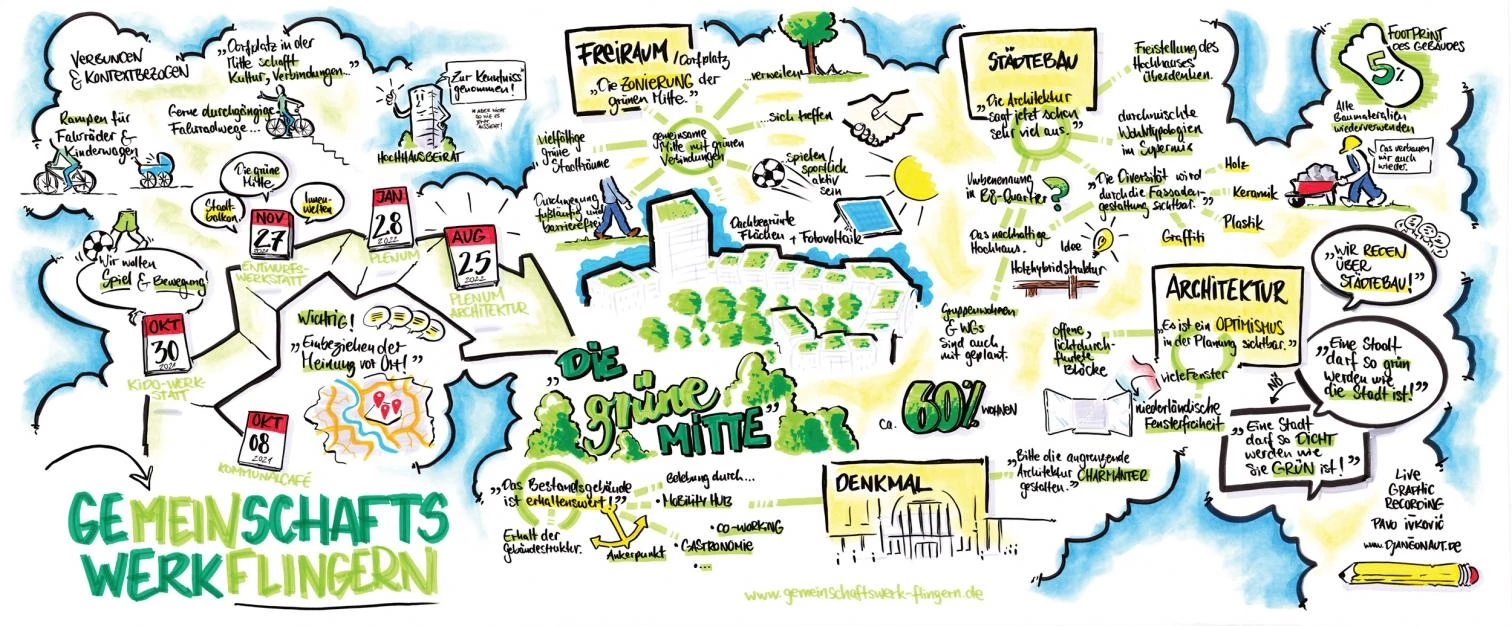 VERBUNDEN
& KONTEXTBEZOGEN
„Dorfplatz in der
Mitte schafft
Kultur, Verbindungen..."
Rampen für
Fahrräder &
Kinderwagen
Gerne durchgängige
Fahrradwege...
„Zur Kenntniss
genommen!
HOCHHAUSBEIRAT
Die grüne
Mitte
Stadt-
balkon
Innen-
welten
„Wir wollen
Spiel & Bewegung!"
OKT
30
2021
KIDO-WERK-
STATT
NOV
27
2021
ENTWURFS-
WERKSTATT
JAN
28
2022
PLENUM
AUG
25
2022
PLENUM
ARCHITEKTUR
OKT
08
2021
KOMMUNALCAFÉ
WICHTIG!
„Einbeziehen der
Meinung vor Ort!"
GEMEINSCHAFTS
WERKFLINGERN
FREIRAUM / Dorfplatz
„Die ZONIERUNG der
grünen Mitte."
gemeinsame
Mitte mit grünen
Verbindungen
...verweilen
...sich treffen
Spielen/
sportlich
aktiv
sein
vielfältige
grüne
Stadträume
Durchwegung
fußläufig und
barrierefrei
Dachbegrünte
Flächen + Fotovoltaik
„DIE
grüne
MITTE"
ca. 60% WOHNEN
„Das Bestandsgebäude
ist erhaltenswert!"
Erhalt der
Gebäudestruktur.
Ankerpunkt
Belebung durch...
• MOBILITY HUB
• CO-WORKING
• GASTRONOMIE
• ...
DENKMAL
„Bitte die angrenzende
Architektur CHARMANTER
gestalten."
www.gemeinschaftswerk-flingern.de
STÄDTEBAU
„Die Architektur
sagt jetzt schon
sehr viel aus."
Freistellung des
Hochhauses
überdenken.
durchmischte
Wohntypologien
im Supermix
Umbenennung
in B8-Quartier
?
„Die Diversität wird
durch die Fassaden-
gestaltung sichtbar."
Holz
Keramik
Plastik
Graffiti
Das nachhaltige
Hochhaus.
Idee
Holzhybridstruktur
Gruppenwohnen
& WGs
sind auch
mit geplant.
ARCHITEKTUR
„Es ist ein OPTIMISMUS
in der Planung sichtbar."
offene,
lichtdurch-
flutete
Blöcke
viele Fenster
niederländische
Fensterfreiheit
FOOTPRINT
DES GEBÄUDES
5%
Alte
Baumaterialien
wiederverwenden
Das verbauen
wir auch
wieder.
„WIR REDEN
ÜBER
STÄDTEBAU!"
„Eine Stadt
darf so grün
werden wie
die Stadt ist!"
NÖ!
„Eine Stadt
darf so DICHT
werden wie
Sie GRÜN ist!"
LIVE
GRAPHIC
RECORDING
PAVO IVKOVIĆ
www.DJANGONAUT.DE